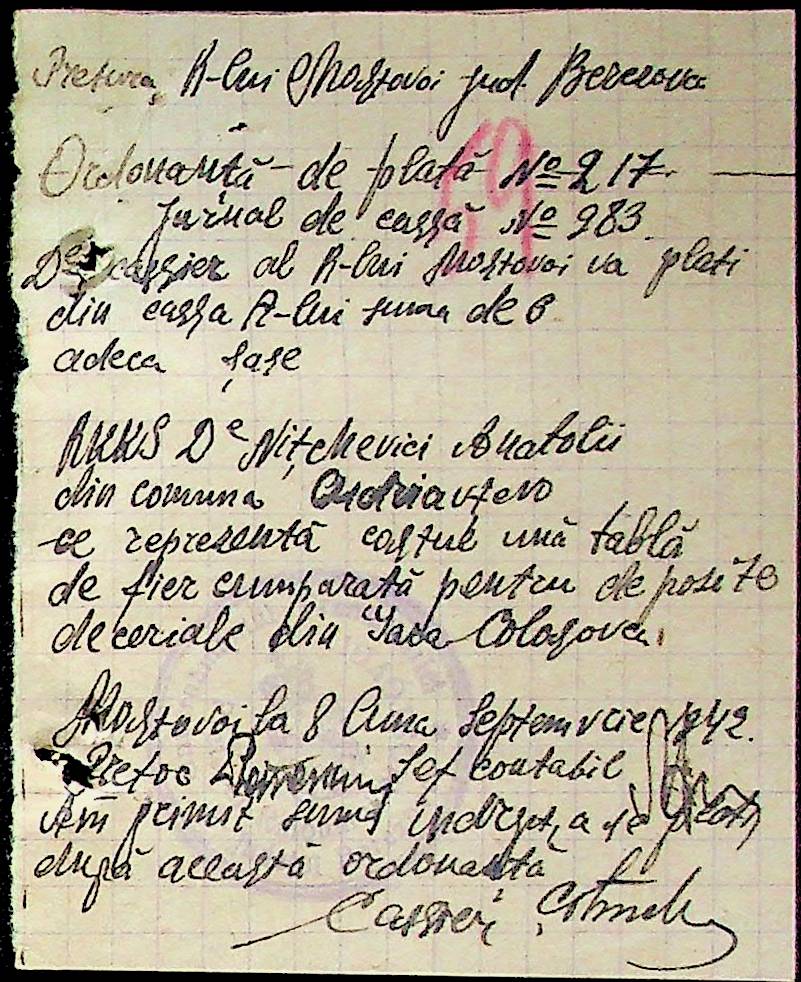 Pretura, R-lui Mostovoi jud. Berezovca
69
Ordonanță de plată № 217.
Jurnal de cassă № 983
Dl cassier al R-lui Mostovoi va plati
din cassa R-lui suma de 6
adeca șase
RKKS De Nițchevici Anatolii
din comuna
ce reprezentă costul ună tablă
de fier cumparată pentru deposite
de ceriale din Iasa Colosova.
Mostovoi la 8 luna Septemvrie 1942.
Pretor șef contabil
Am primit suma indicată a se plati
după această ordonanță
Cassier,